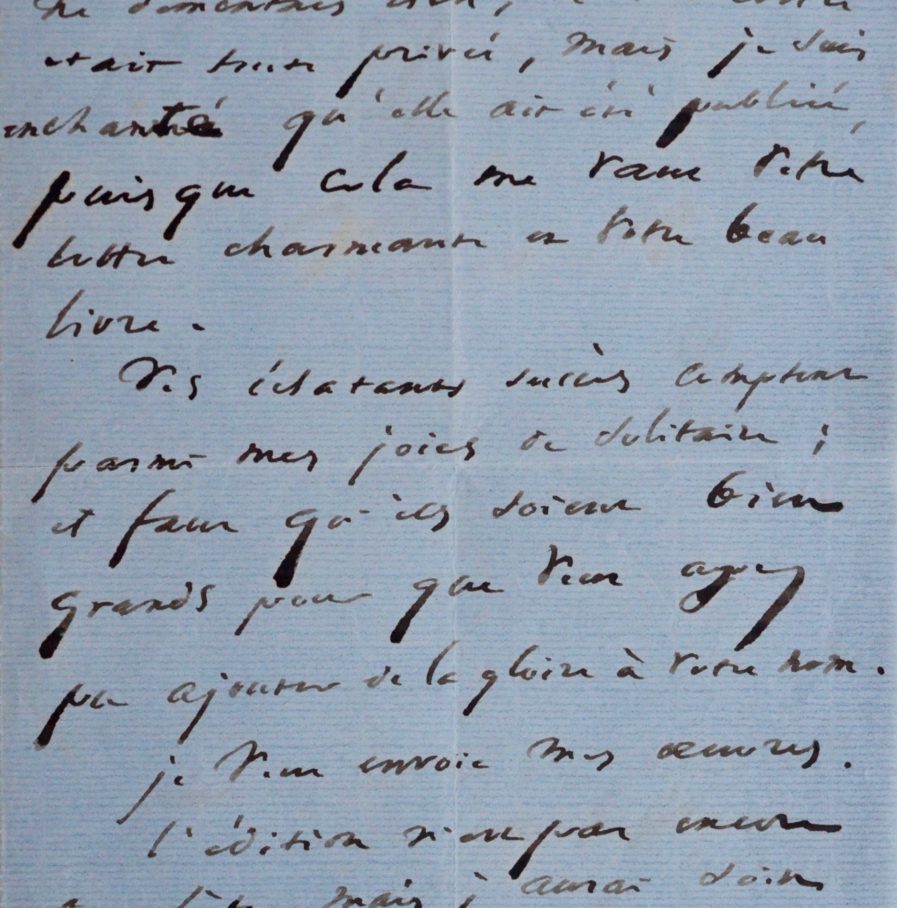 ne démentais rien,
était toute privée, mais je suis
enchanté qu'elle ait été publiée,
puisque cela me vaut votre
lettre charmante et votre beau
livre.
Vos éclatants succès comptent
parmi mes joies de solitaire ;
et faut qu'ils soient bien
grands pour que vous ayez
pu ajouter de la gloire à votre nom.
je vous envoie mes œuvres.
l'édition n'est pas encore
mais j'aurai soin